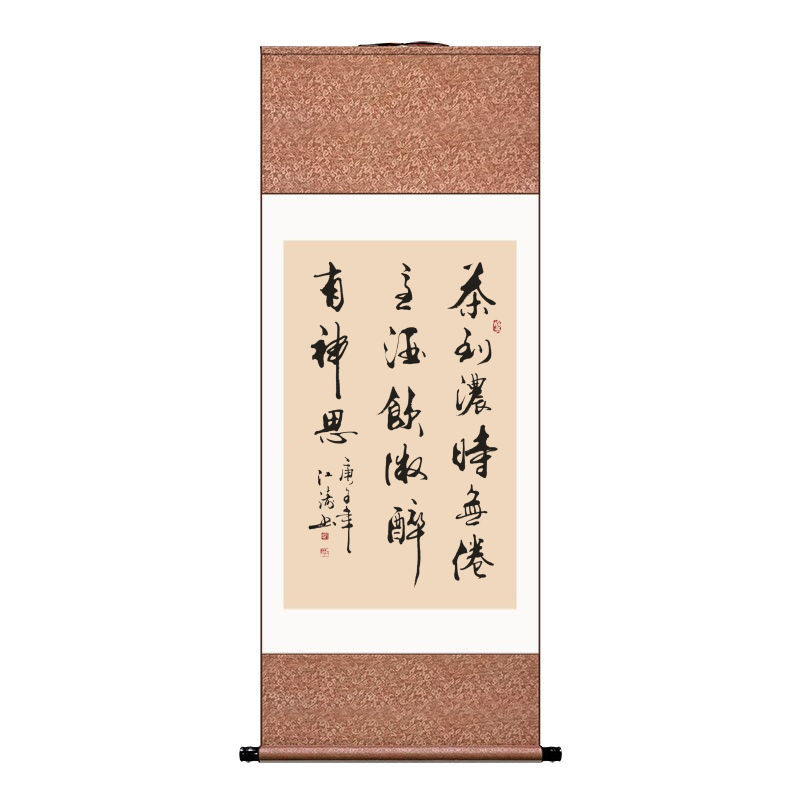 茶到濃時無倦
意酒飲微醉
有神思
庚子年
江濤書